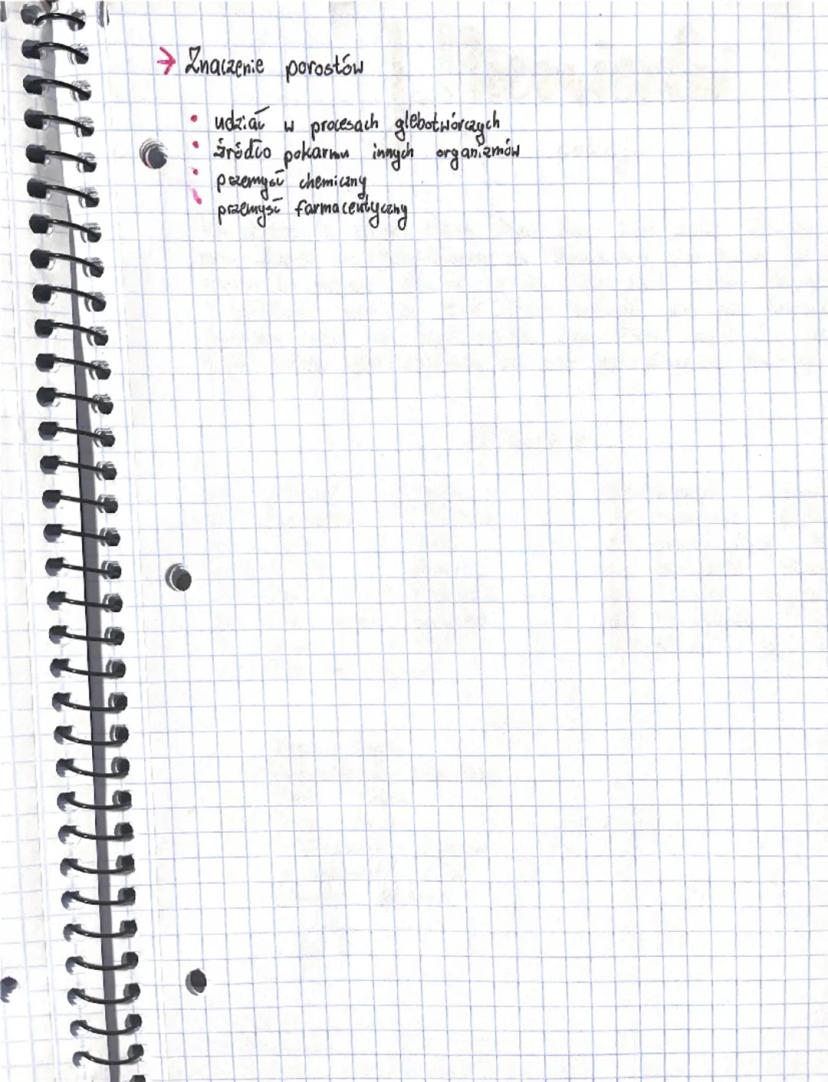 → Znaczenie porostów
• udział w procesach glebotwórczych
• źródło pokarmu innych organizmów
• przemysł chemiczny
• przemysł farmaceutyczny